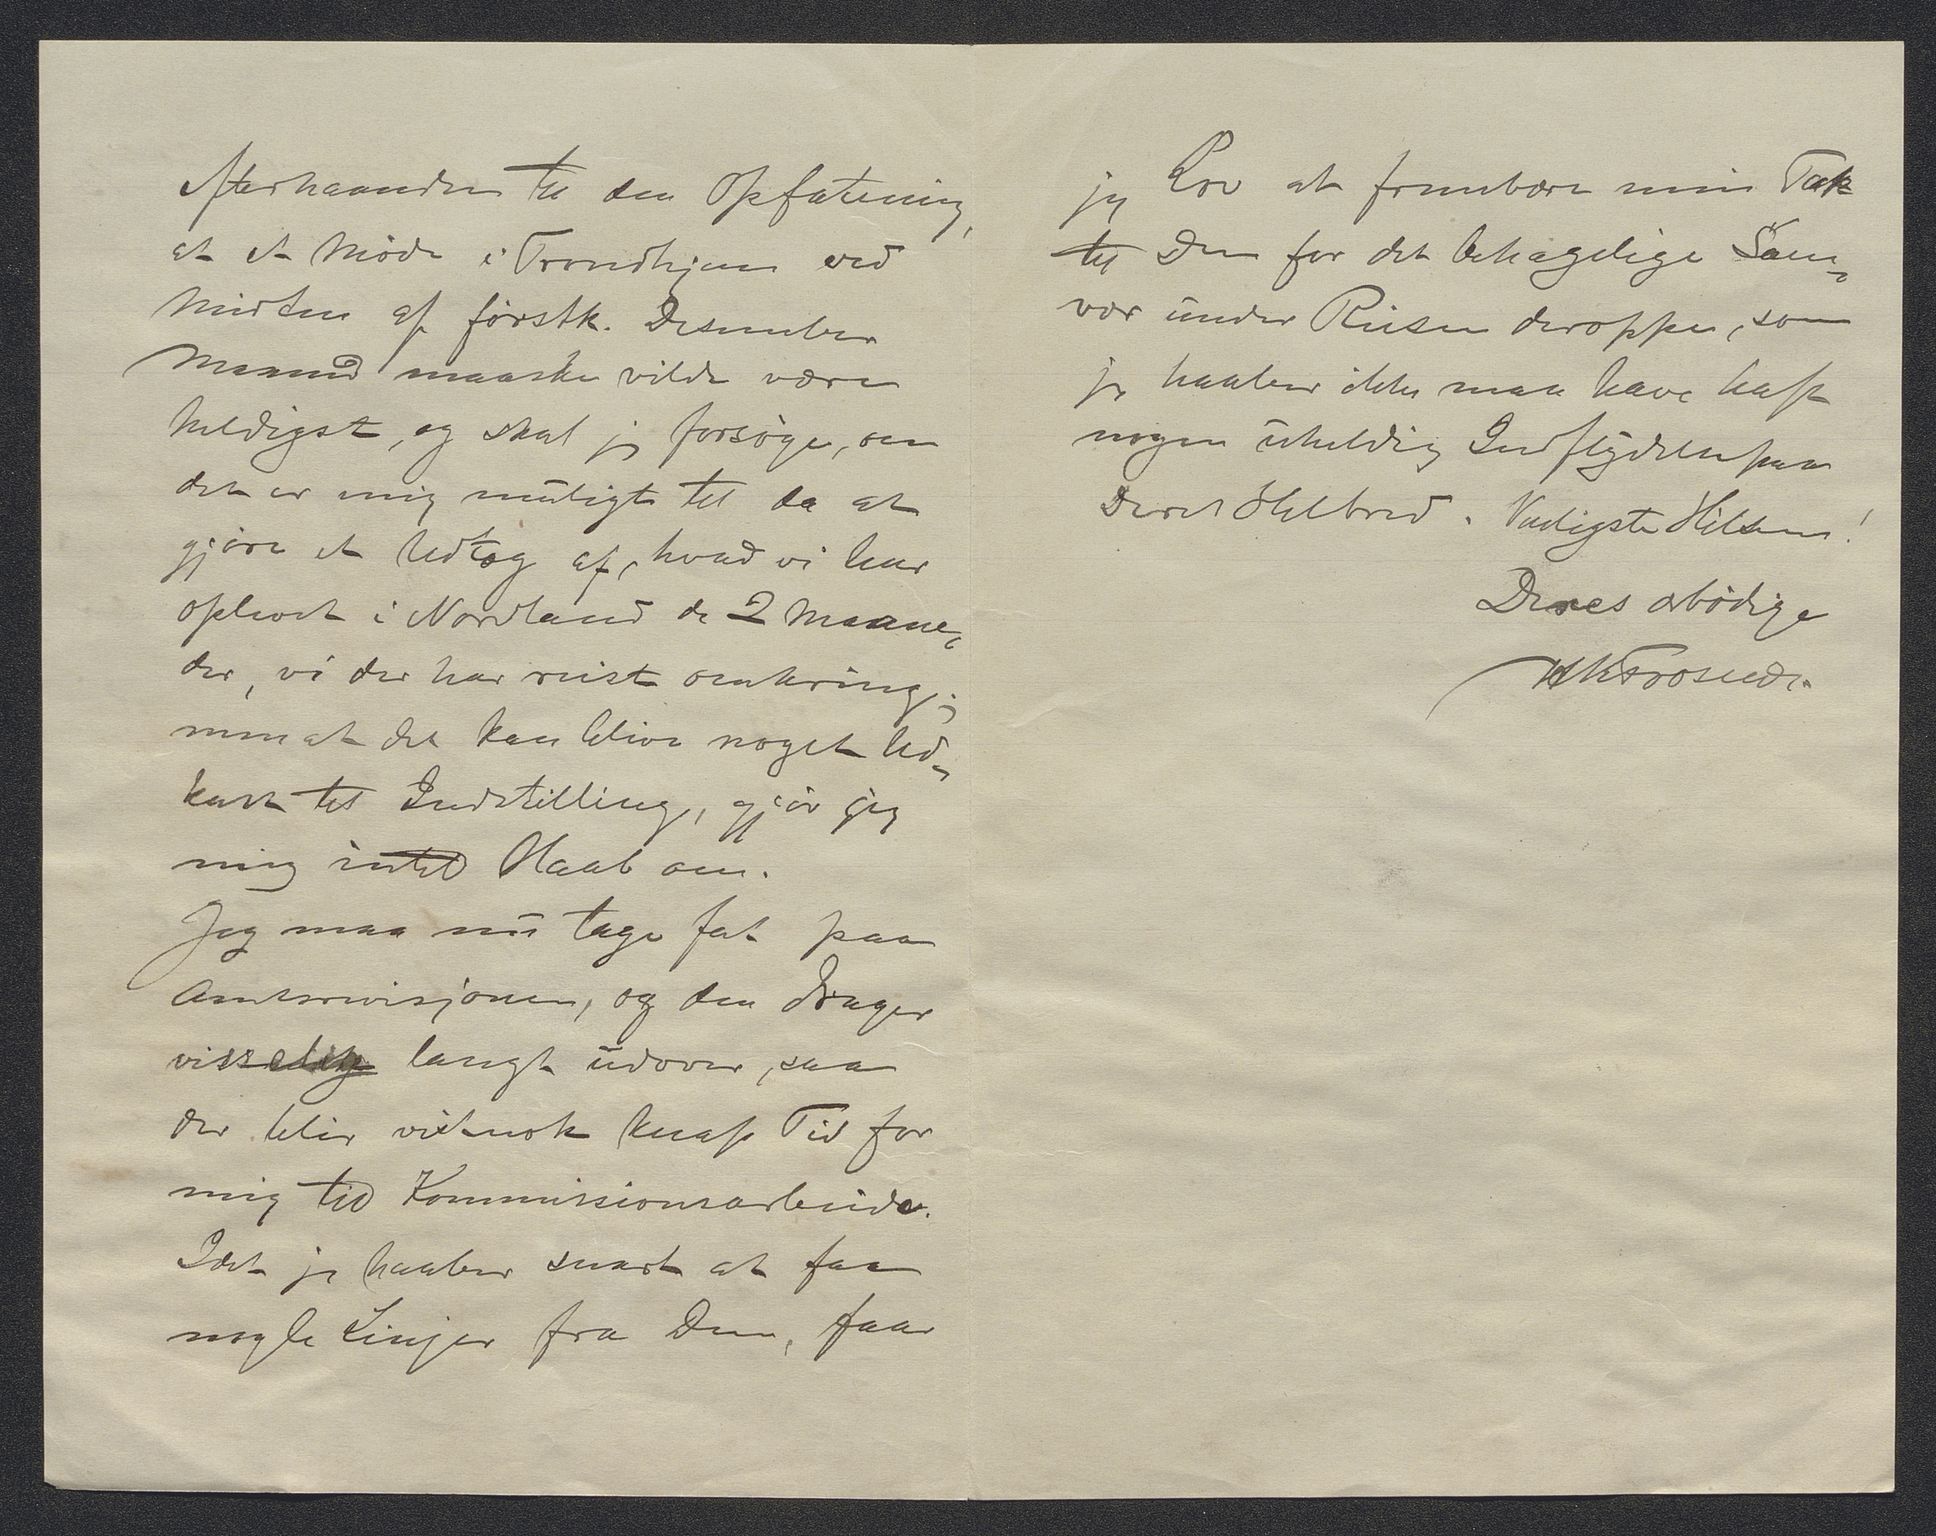 efterhaanden til den Opfatning,
at et Møde i Trondhjem ved
Midten af førstk. Desember
Maaned maaske vilde være
heldigst, og skal jeg forsøge, om
det er mig muligt til da at
gjøre et Udtog af, hvad vi har
oplevet i Nordland de 2 Maane-
der, vi der har reist omkring;
men at det kan blive noget Ud-
kast til Indstilling, gjør jeg
mig intet Haab om.
Jeg maa nu tage fat paa
Amtsrevisjonen, og den drager
visselig langt udover, saa
der blir vistnok knap Tid for
mig til Kommissionsarbeide.
Idet jeg haaber snart at faa
nogle Linjer fra Dem, faar
jeg Lov at frembære min Tak
til Dem for det behagelige Sam-
vær under Reisen deroppe, som
jeg haaber ikke maa have haft
nogen uheldig Indflydelse paa
Deres Helbred. Venligste Hilsen!
Deres ærbødige